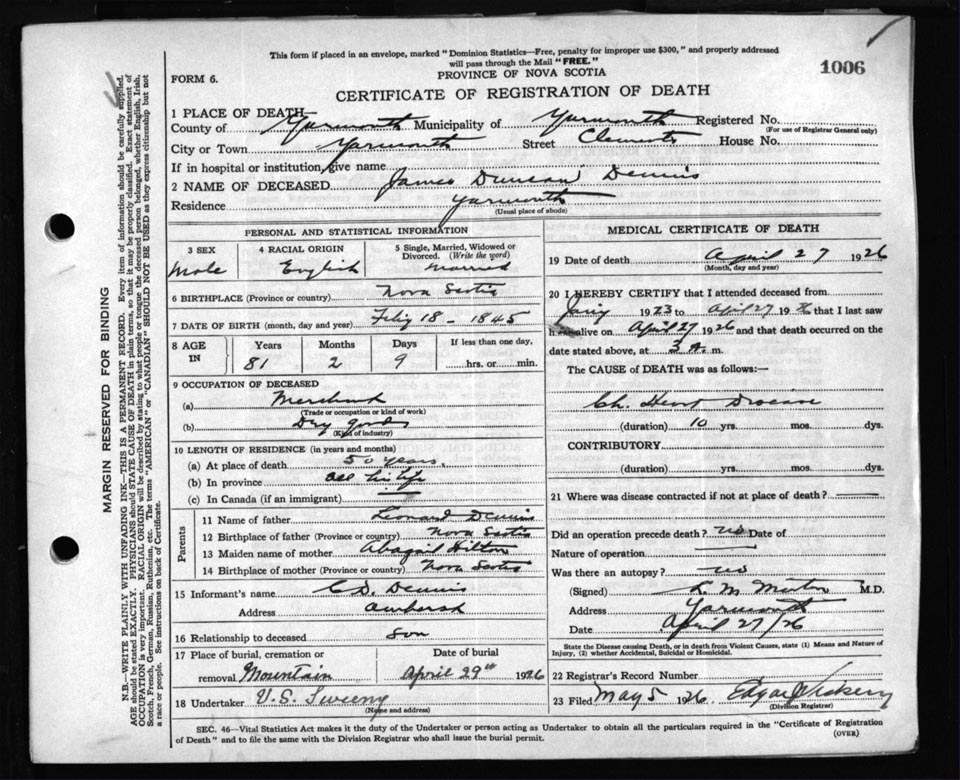 This form if placed in an envelope, marked "Dominion Statistics—Free, penalty for improper use $300," and properly addressed
will pass through the Mail "FREE."
PROVINCE OF NOVA SCOTIA
1006
FORM 6.
CERTIFICATE OF REGISTRATION OF DEATH
1 PLACE OF DEATH
County of Yarmouth Municipality of Yarmouth Registered No.
(For use of Registrar General only)
City or Town Yarmouth Street Clements House No.
If in hospital or institution, give name
2 NAME OF DECEASED James Duncan Dennis
Residence Yarmouth
(Usual place of abode)
PERSONAL AND STATISTICAL INFORMATION
3 SEX 4 RACIAL ORIGIN 5 Single, Married, Widowed or
Divorced. (Write the word)
Male English Married
6 BIRTHPLACE (Province or country) Nova Scotia
7 DATE OF BIRTH (month, day and year) 18 - 1845
8 AGE IN Years Months Days If less than one day,
81 2 9 hrs. or min.
9 OCCUPATION OF DECEASED
(a) Merchant
(Trade or occupation or kind of work)
(b) Dry goods
(Kind of industry)
10 LENGTH OF RESIDENCE (in years and months)
(a) At place of death 50 years
(b) In province all his life
(c) In Canada (if an immigrant)
Parents
11 Name of father Leonard Dennis
12 Birthplace of father (Province or country) Nova Scotia
13 Maiden name of mother Abagail Hilton
14 Birthplace of mother (Province or country) Nova Scotia
15 Informant's name C.D. Dennis
Address Amherst
16 Relationship to deceased Son
17 Place of burial, cremation or Date of burial
removal Mountain April 29th 1926
18 Undertaker V.S. Sweeny
(Name and address)
MEDICAL CERTIFICATE OF DEATH
19 Date of death April 27 1926
(Month, day and year)
20 I HEREBY CERTIFY that I attended deceased from
1923 to April 27 1926 that I last saw
h alive on April 27 1926 and that death occurred on
date stated above, at 3 A. m.
The CAUSE of DEATH was as follows:—
Ch. Heart Disease
(duration) 10 yrs. mos. dys.
CONTRIBUTORY
(duration) yrs. mos. dys.
21 Where was disease contracted if not at place of death?
Did an operation precede death? no Date of
Nature of operation
Was there an autopsy? no
(Signed) M.D.
Address Yarmouth
Date April 27/26
State the Disease causing Death, or in death from Violent Causes, state (1) Means and Nature of
Injury, (2) whether Accidental, Suicidal or Homicidal.
22 Registrar's Record Number
23 Filed May 5 1926
(Division Registrar)
SEC. 46—Vital Statistics Act makes it the duty of the Undertaker or person acting as Undertaker to obtain all the particulars required in the "Certificate of Registration
of Death" and to file the same with the Division Registrar who shall issue the burial permit.
(OVER)
MARGIN RESERVED FOR BINDING
N.B.—WRITE PLAINLY WITH UNFADING INK—THIS IS A PERMANENT RECORD. Every item of information should be carefully supplied.
AGE should be stated EXACTLY. PHYSICIANS should STATE CAUSE OF DEATH in plain terms, so that it may be properly classified. Exact statement of
OCCUPATION is very important. RACIAL ORIGIN will be described by stating to what people or tongue the deceased person belonged, whether English, Irish,
Scotch, French, German, Russian, Ruthenian, etc. The terms "AMERICAN" or "CANADIAN" SHOULD NOT BE USED as they express citizenship but not
a race or people. See instructions on back of Certificate.